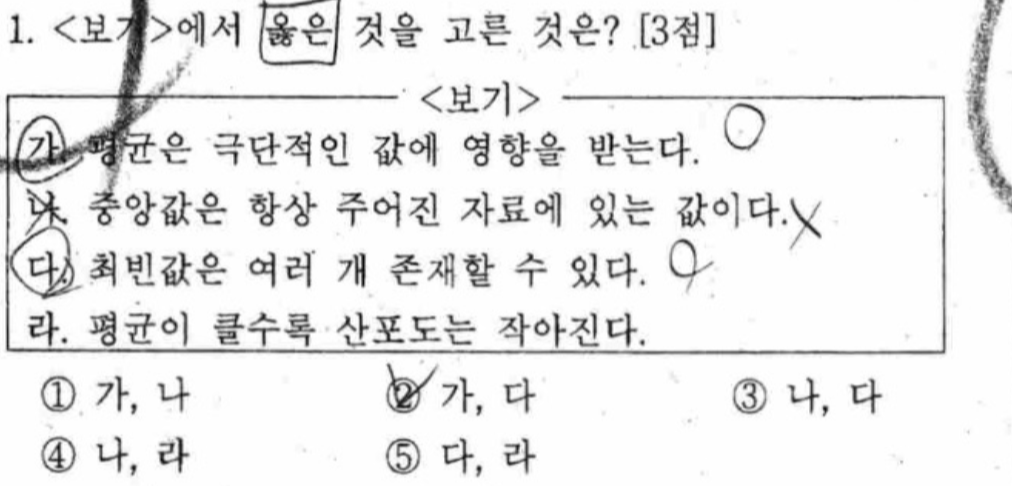 1. <보기>에서 옳은 것을 고른 것은? [3점]
<보기>
가. 평균은 극단적인 값에 영향을 받는다.
나. 중앙값은 항상 주어진 자료에 있는 값이다.
다. 최빈값은 여러 개 존재할 수 있다.
라. 평균이 클수록 산포도는 작아진다.
① 가, 나 ② 가, 다 ③ 나, 다
④ 나, 라 ⑤ 다, 라